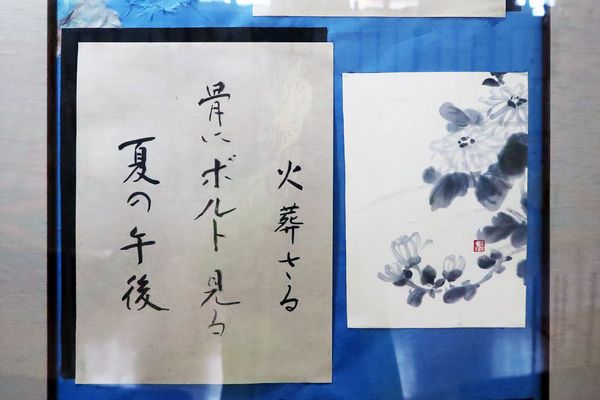 火葬せる
骨にボルト見る
夏の午後